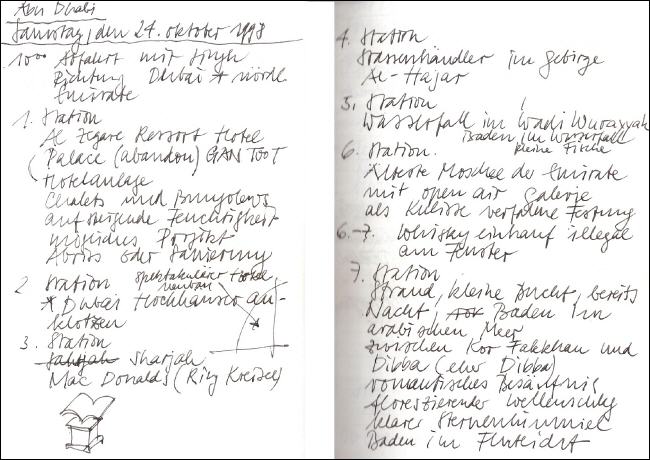 Abu Dhabi
Samstag, den 24. Oktober 1998
10°° Abfahrt mit Singh
Richtung Dubai + nördl
Emirate
1. Station
Al Ressort Hotel
(Palace (abandon) GANTOOT
Hotelanlage
Chalets und Bungalows
aufsteigende Feuchtigkeit
Projekt
Abriss oder Sanierung
2 Station spektakulärer Hotel
neubau
* Dubai Hochhäuser an-
klotzen
3. Station
Sharjah
Mac Donalds (Kreisel)
4. Station
Strassenhändler im Gebirge
Al-Hajar
5. Station !
Wasserfall im Wadi Wurayyah
Baden im Wasserfall
6. Station. kleine Fische
Älteste Moschee der Emirate
mit open air Galerie
als Kulisse verfallne Festung
6.-7. Whisky einkauf illegal
am Fenster
7. Station
Strand, kleine Bucht, bereits
Nacht, Baden im
arabischen Meer
zwischen Kor Fakkhan und
Dibba (ehr Dibba)
romantisches Besäufnis
floreszierender Wellenschlag
klarer Sternenhimmel
Baden im